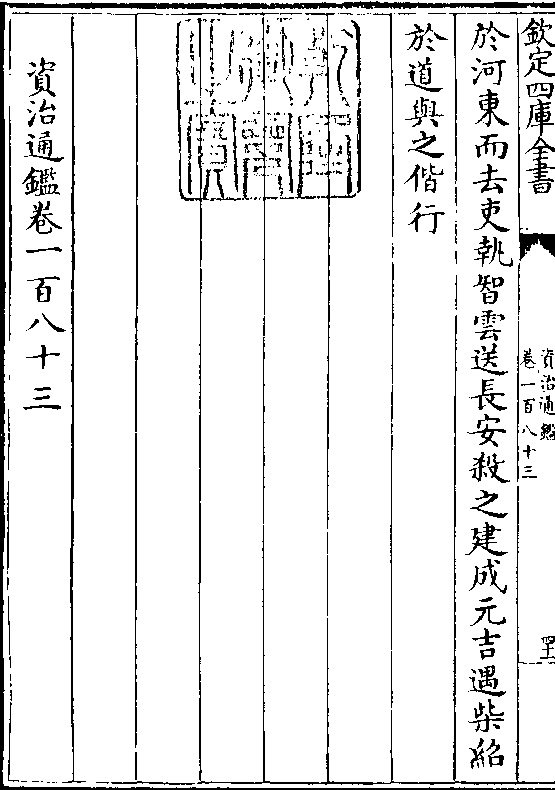 欽定四庫全書
資治通鑑
卷一百八十三
於河東而去吏執智雲送長安殺之建成元吉遇柴紹
於道與之偕行
資治通鑑卷一百八十三